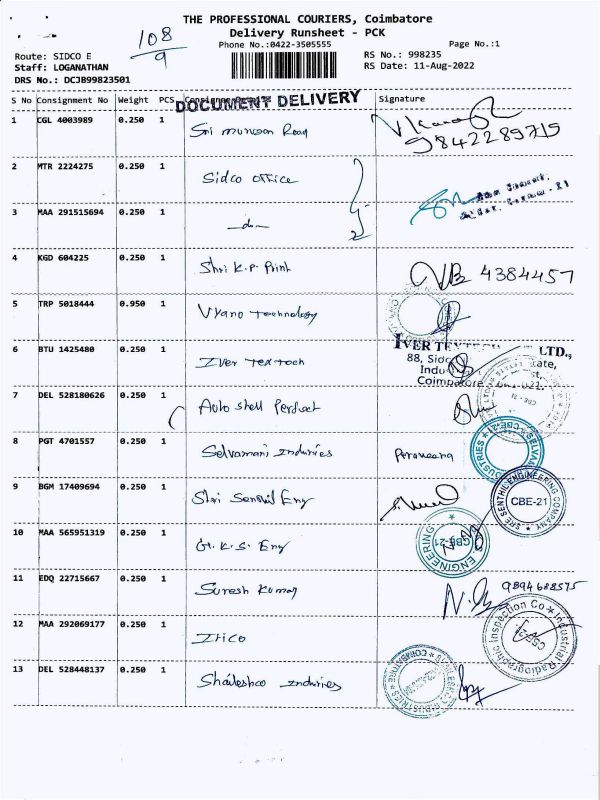 THE PROFESSIONAL COURIERS, Coimbatore
Delivery Runsheet - PCK
108
9
Phone No.:0422-3505555
Page No.:1
Route: SIDCO E
RS No.: 998235
Staff: LOGANATHAN
RS Date: 11-Aug-2022
DRS No.: DCJB99823501
S No Consignment No Weight PCS Signature
DOCUMENT DELIVERY
1 CGL 4003989 0.250 1 Sri Murugan Road
9842289715
2 MTR 2224275 0.250 1 Sidco office
3 MAA 291515694 0.250 1 -do-
4 KGD 604225 0.250 1 Shri K.P. Print 4384457
5 TRP 5018444 0.950 1 Vyano Technology
6 BTU 1425480 0.250 1 Iver Textech
IVER TEXTECH LTD.,
88, Sidco
Coimbatore
7 DEL 528180626 0.250 1 Auto shell Perfect
8 PGT 4701557 0.250 1 Selvamani Indusries
9 BGM 17409694 0.250 1 Shri Senthil Eng
SRE SENTHIL ENGINEERING COMPANY
CBE-21
10 MAA 565951319 0.250 1 G.K.S. Eng
ENGINEERING
CBE-21
11 EDQ 22715667 0.250 1 Suresh Kumar
9894688575
12 MAA 292069177 0.250 1 Itico
Industrial Radiographic Inspection Co
13 DEL 528448137 0.250 1 Shaileshco Indusries